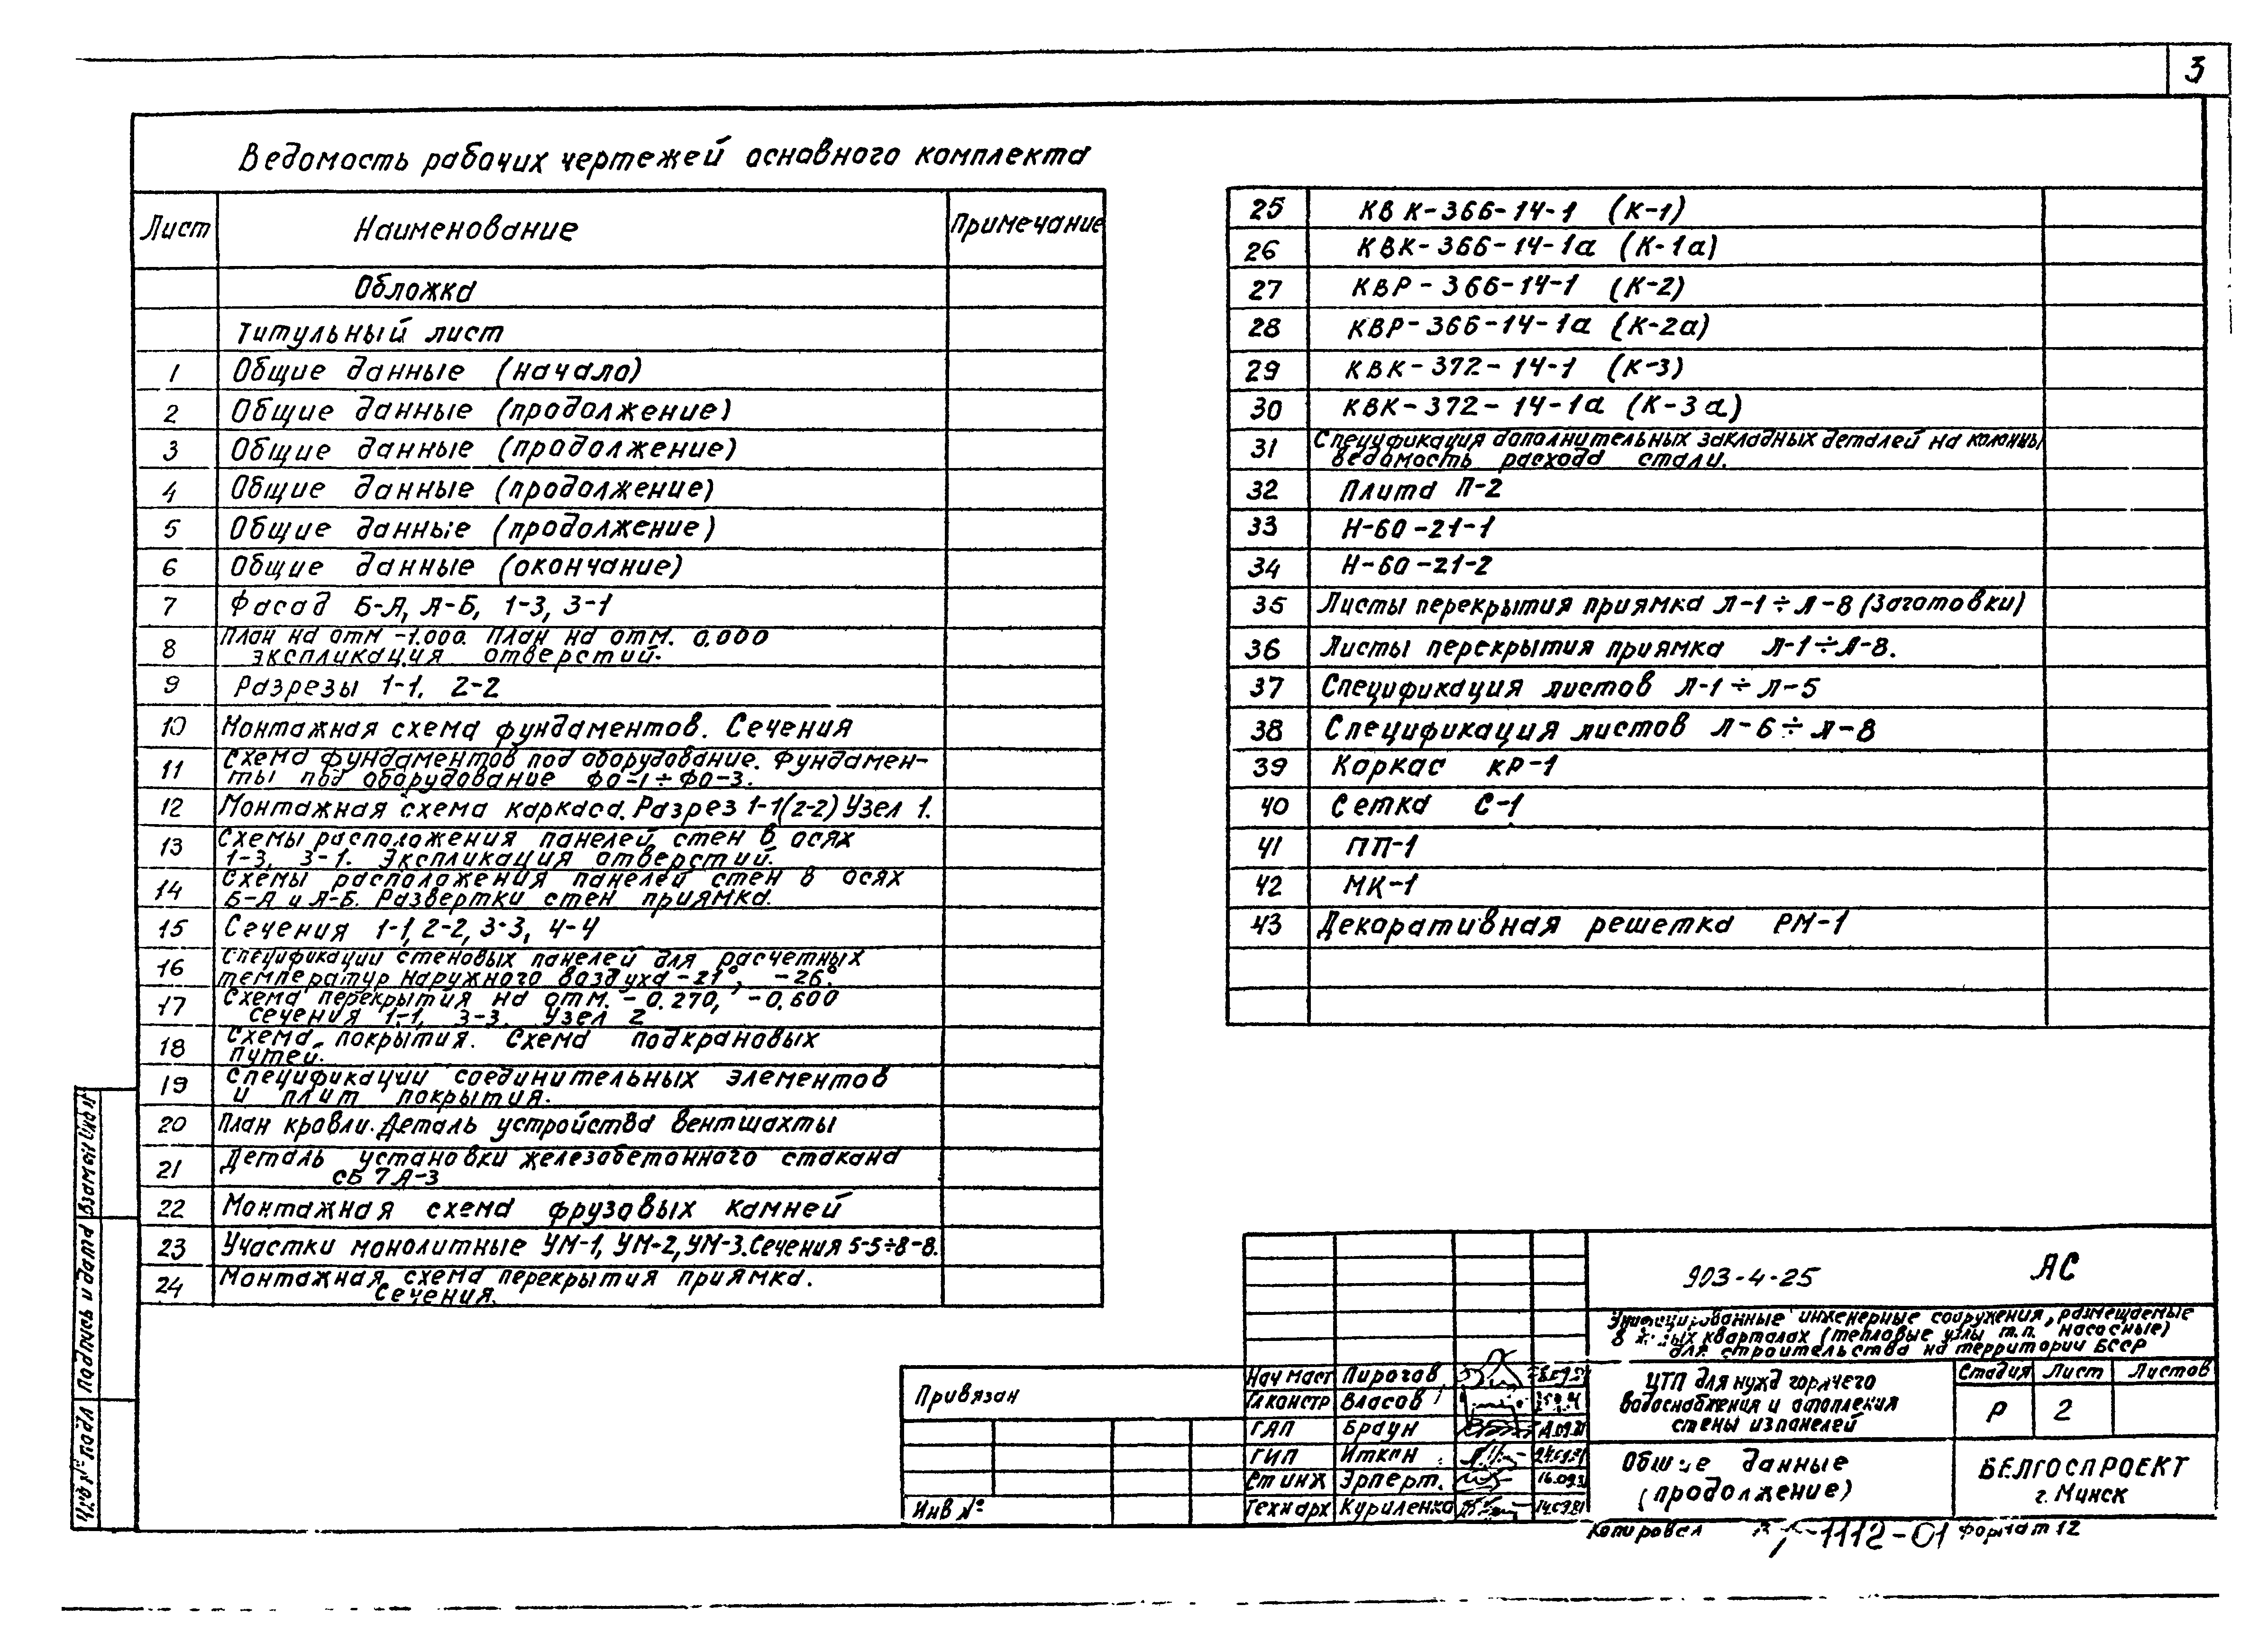 3
Ведомость рабочих чертежей основного комплекта
Лист Наименование Примечание
Обложка
Титульный лист
1 Общие данные (начало)
2 Общие данные (продолжение)
3 Общие данные (продолжение)
4 Общие данные (продолжение)
5 Общие данные (продолжение)
6 Общие данные (окончание)
7 Фасад Б-А, А-Б, 1-3, 3-1
8 План на отм -1.000. План на отм. 0.000
экспликация отверстий.
9 Разрезы 1-1, 2-2
10 Монтажная схема фундаментов. Сечения
11 Схема фундаментов под оборудование. Фундамен-
ты под оборудование ФО-1÷ФО-3.
12 Монтажная схема каркаса. Разрез 1-1(2-2) Узел 1.
13 Схемы расположения панелей стен в осях
1-3, 3-1. Экспликация отверстий.
14 Схемы расположения панелей стен в осях
Б-А и А-Б. Развертки стен приямка.
15 Сечения 1-1, 2-2, 3-3, 4-4
16 Спецификации стеновых панелей для расчетных
температур наружного воздуха -21°, -26°.
17 Схема перекрытия на отм. -0.270, -0.600
сечения 1-1, 3-3. Узел 2
18 Схема покрытия. Схема подкрановых
путей.
19 Спецификации соединительных элементов
и плит покрытия.
20 План кровли. Деталь устройства вентшахты
21 Деталь установки железобетонного стакана
СБ 7А-3
22 Монтажная схема фрузовых камней
23 Участки монолитные УМ-1, УМ-2, УМ-3. Сечения 5-5÷8-8.
24 Монтажная схема перекрытия приямка.
Сечения.
25 КВК-366-14-1 (К-1)
26 КВК-366-14-1а (К-1а)
27 КВР-366-14-1 (К-2)
28 КВР-366-14-1а (К-2а)
29 КВК-372-14-1 (К-3)
30 КВК-372-14-1а (К-3а)
31 Спецификация дополнительных закладных деталей на колонны
ведомость расхода стали.
32 Плита П-2
33 Н-60-21-1
34 Н-60-21-2
35 Листы перекрытия приямка Л-1÷Л-8 (Заготовки)
36 Листы перекрытия приямка Л-1÷Л-8.
37 Спецификация листов Л-1÷Л-5
38 Спецификация листов Л-6÷Л-8
39 Каркас КР-1
40 Сетка С-1
41 ПП-1
42 МК-1
43 Декоративная решетка РМ-1
Инв № подл Подпись и дата Взамен инв №
903-4-25 АС
Унифицированные инженерные сооружения, размещаемые
в кварталах (тепловые узлы т.п. насосные)
для строительства на территории БССР
Привязан
Инв №
Нач маст Пирогов
Гл констр Власов
ГАП Браун
ГИП Иткин
Ст инж Эрперт.
Технарх Куриленко
ЦТП для нужд горячего
водоснабжения и отопления
стены из панелей
Стадия Лист Листов
Р 2
Общие данные
(продолжение)
БЕЛГОСПРОЕКТ
г. Минск
Копировал -1112-01 формат 12